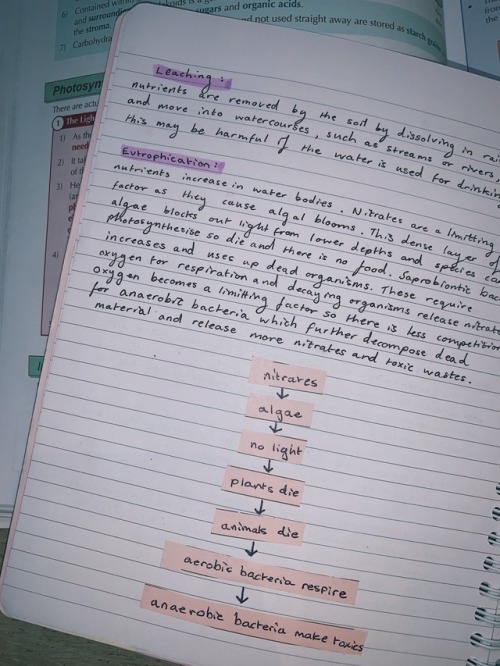 6) Contained within
sugars and organic acids.
and surrounding
the stroma.
7) Carbohydra
nd not used straight away are stored as starch grains
Photosyn
There are actu
1 The Ligh
1) As the
need
2) It ta
of th
3) He
4)
Leaching:
nutrients are removed by the soil by dissolving in
and move into watercourses, such as streams or rivers,
this may be harmful if the water is used for drinking
Eutrophication:
nutrients increase in water bodies. Nitrates are a limitting
factor as they cause algal blooms. This dense layer of
algae blocks out light from lower depths and species can
photosynthesise so die and there is no food. Saprobiontic
increases and uses up dead organisms. These require
oxygen for respiration and decaying organisms release nitrate
oxygen becomes a limitting factor so there is less competition
for anaerobic bacteria which further decompose dead
material and release more nitrates and toxic wastes.
nitrates
↓
algae
↓
no light
↓
plants die
↓
animals die
↓
aerobic bacteria respire
↓
anaerobic bacteria make toxics